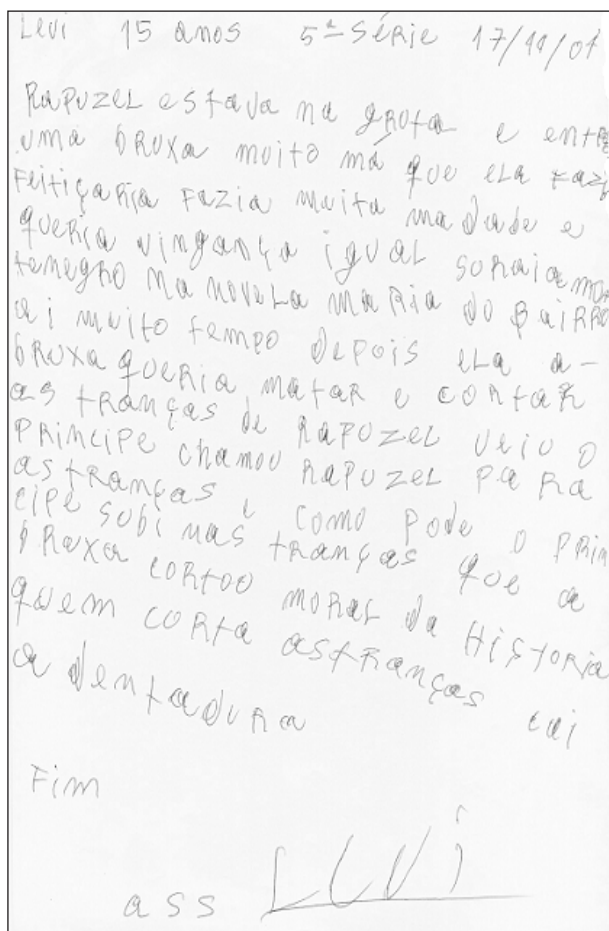 Levi 15 anos 5ª Série 17/11/01
RAPUZEL estava na gruta e entre
uma bruxa muito má que ela fazi
feitiçariça fazia muita madade e
queria vingança igual soraia mon
tenegro na novela maria do Bairro
ai muito tempo depois ela a-
bruxa queria matar e cortar
as tranças de Rapuzel veio o
principe chamou Rapuzel para
as tranças e como pode o prin
cipe subi nas tranças que a
bruxa cortoo moral da História
quem corta as tranças cai
a dentadura
Fim
ass Levi